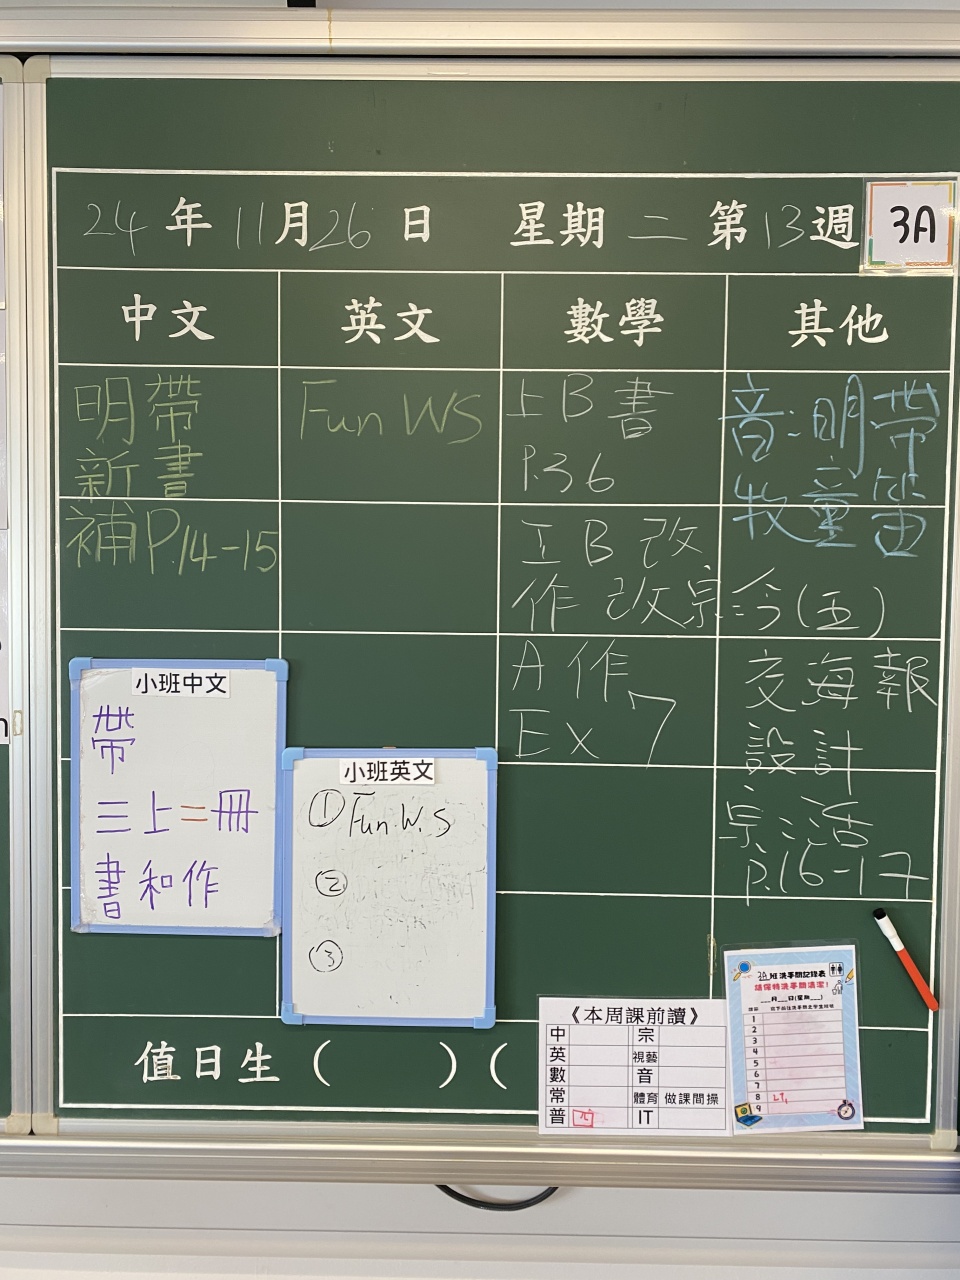 24年11月26日 星期二 第13週
3A
中文 英文 數學 其他
明帶
新書
補P.14-15
Fun WS
上B書
P.36
工B改
作改
A作
Ex 7
音:明帶
牧童笛
宗:今(五)
交海報
設計
宗:活
p.16-17
小班中文
帶
三上=冊
書和作
小班英文
① Fun W.S
②
③
值日生( )(
《本周課前讀》
中 宗
英 視藝
數 音
常 體育 做課間操
普 IT
3A班洗手間記錄表
請保持洗手間清潔!
__月__日(星期__)
1
2
3
4
5
6
7
8
9